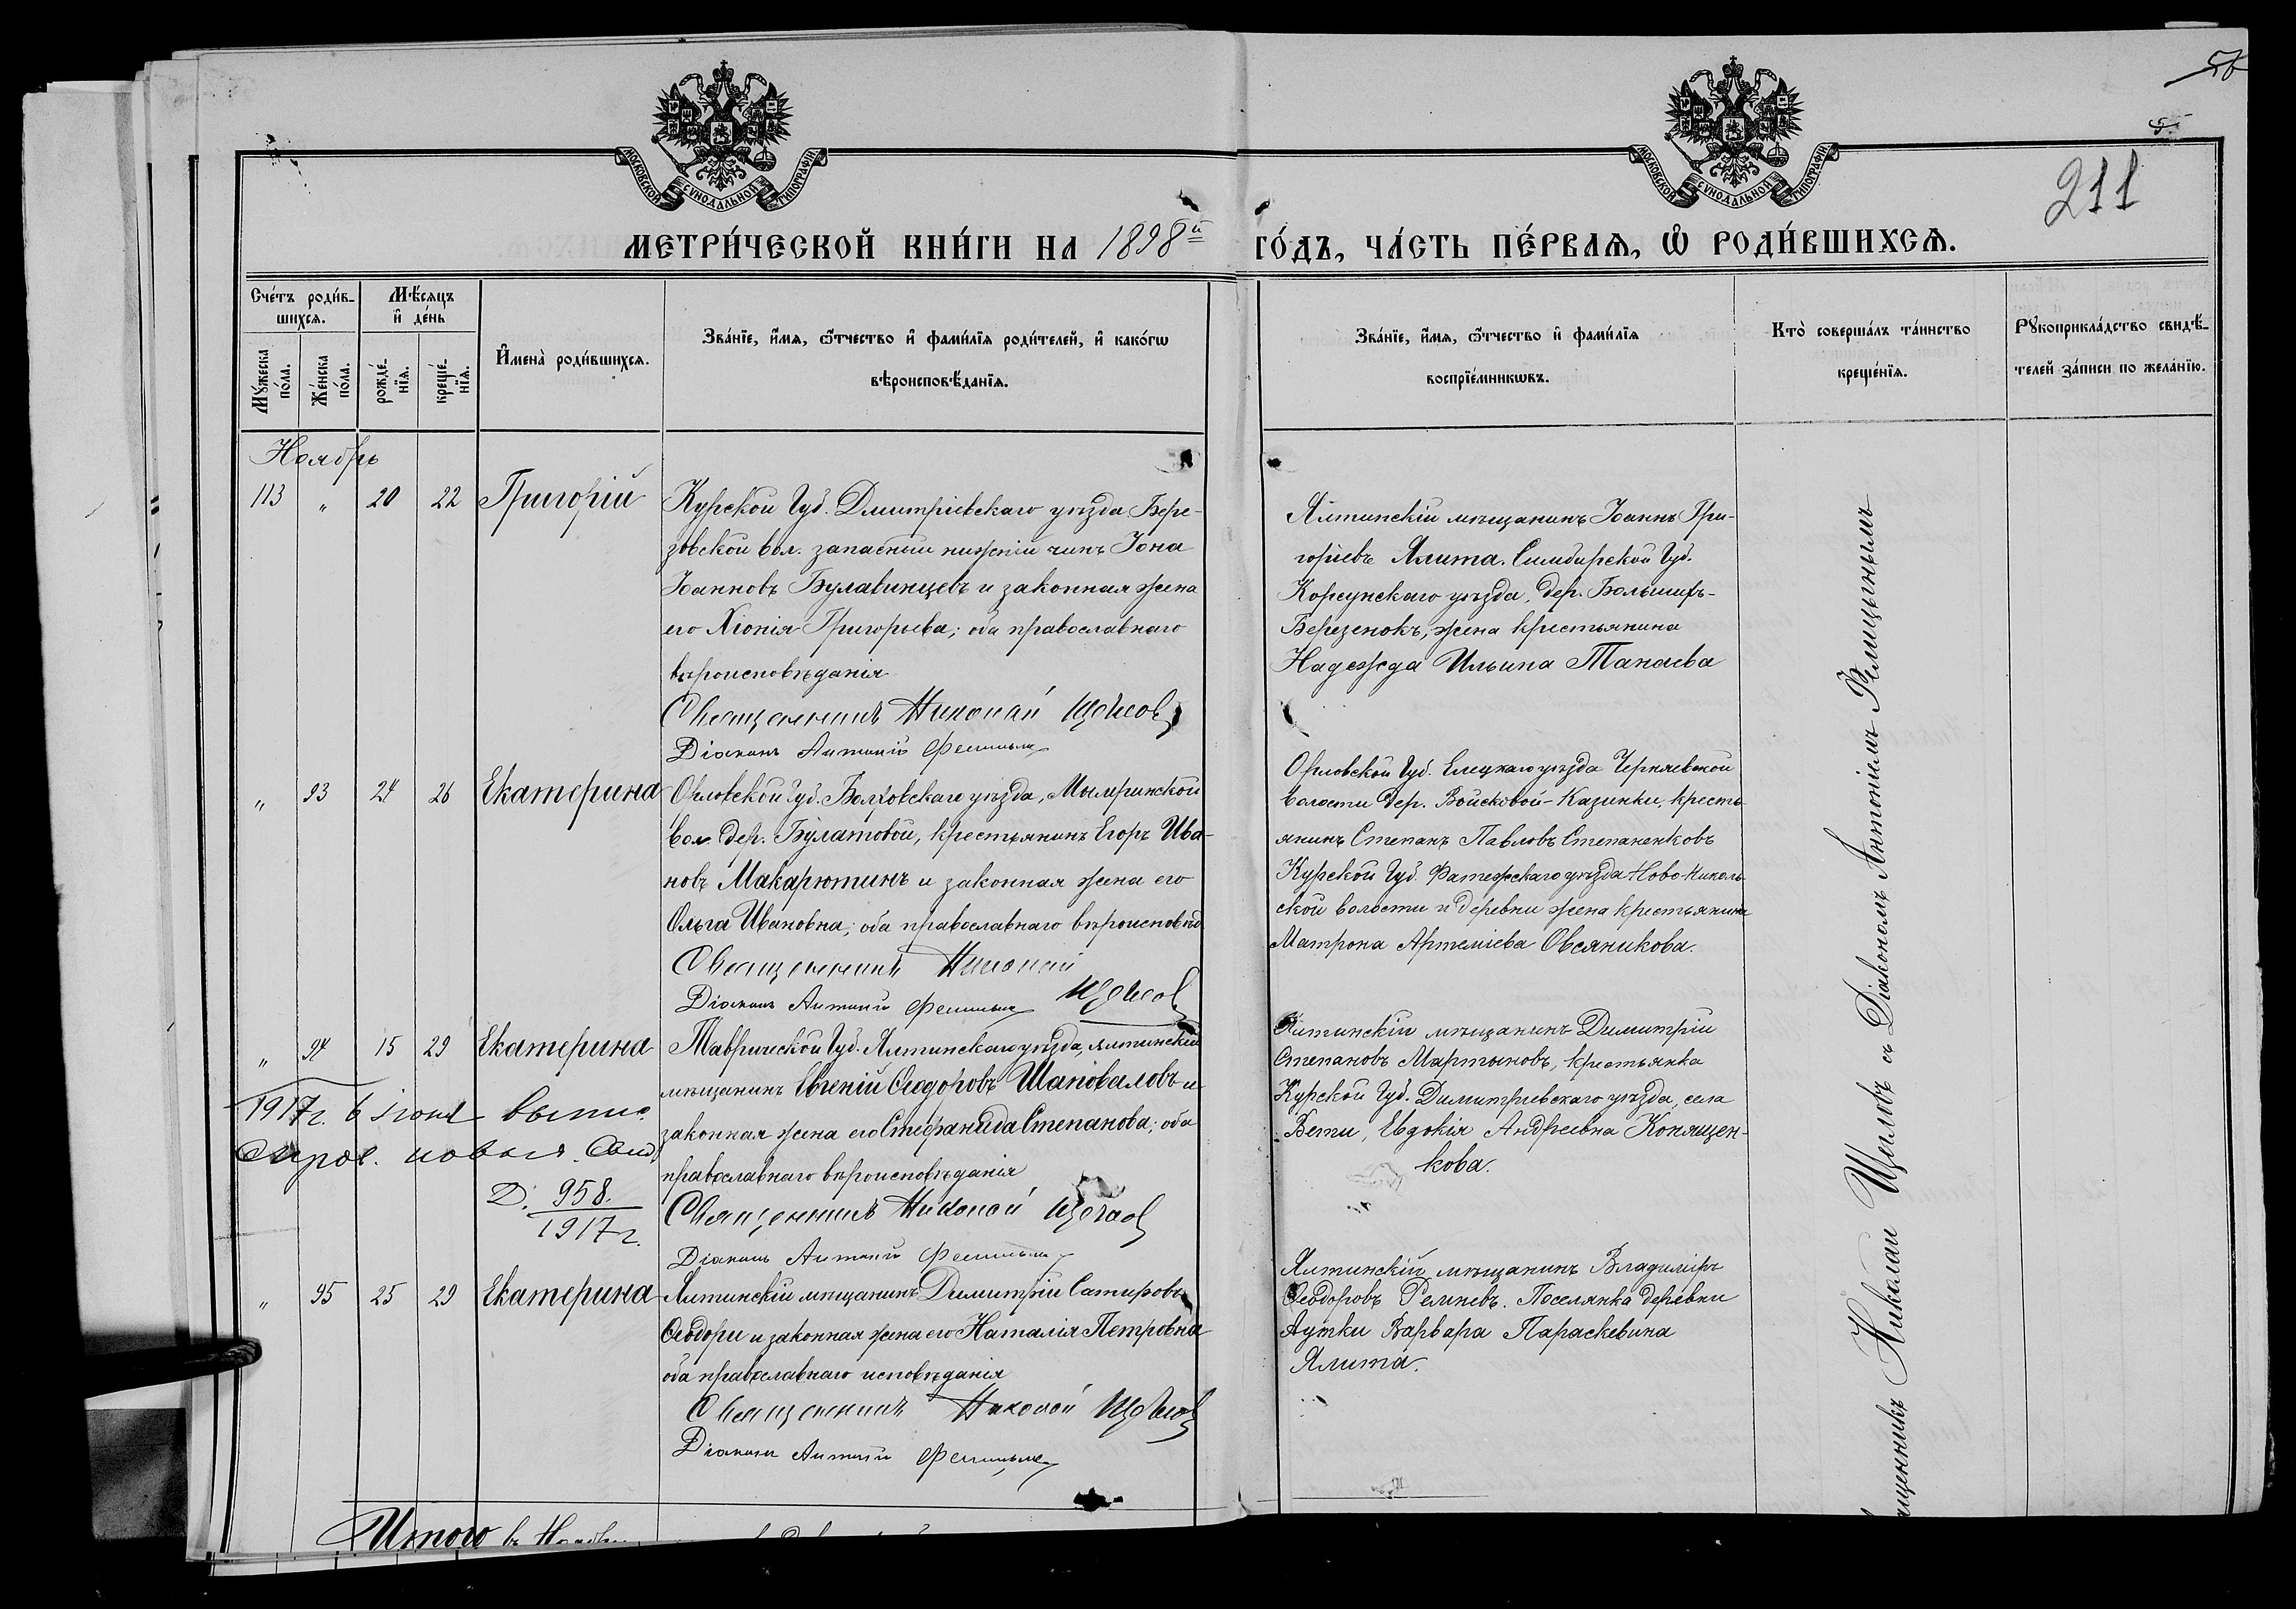 56
5.
211
МОСКОВСКОЙ СѴНОДАЛЬНОЙ ТИПОГРАФІИ
МОСКОВСКОЙ СѴНОДАЛЬНОЙ ТИПОГРАФІИ
МЕТРИ́ЧЕСКОЙ КНИ́ГИ НА 1898й ГО́ДЪ, ЧА́СТЬ ПЕ́РВАѦ, Ѡ РОДИ́ВШИХСѦ.
Сче́тъ роди́в-
шихсѧ.
Мꙋ́жеска по́ла.
Же́нска по́ла.
Мѣ́сѧцъ
и҆ де́нь
рожде́нїѧ.
креще́нїѧ.
И҆мена̀ роди́вшихсѧ.
Зва́нїе, и҆́мѧ, ѻ҆́тчество и҆ фами́лїѧ роди́телей, и҆ како́гѡ
вѣроисповѣ́данїѧ.
Зва́нїе, и҆́мѧ, ѻ҆́тчество и҆ фами́лїѧ
воспрїе́мникѡвъ.
Кто̀ соверша́лъ та́инство
креще́нїѧ.
Рꙋкоприкла́дство свидѣ́-
телей за́писи по жела́нїю.
Ноябрь
113 " 20 22 Григорій
Курской Губ. Дмитріевскаго уѣзда Бере-
зовской вол. запасный нижній чинъ Іона
Іоанновъ Булавинцевъ и законная жена
его Хіонія Григорьева; оба православнаго
вѣроисповѣданія
Священникъ Николай Щегловъ
Діаконъ Антоній
Ялтинскій мѣщанинъ Іоаннъ Гри-
горіевъ Ялита. Симбирской Губ.
Корсунскаго уѣзда, дер. Большихъ-
Березенокъ, жена крестьянина
Надежда Ильина Танаева
" 93 24 26 Екатерина
Орловской Губ. Болховскаго уѣзда, Мымринской
вол. дер. Булатовой, крестьянинъ Егоръ Ива-
новъ Макарютинъ и законная жена его
Ольга Ивановна; оба православнаго вѣроисповѣд.
Священникъ Николай
Діаконъ Антоній Щегловъ
Орловской Губ. Елецкаго уѣзда Чернаевской
волости дер. Войсковой-Казинки, кресть-
янинъ Степанъ Павловъ Степаненковъ
Курской Губ. Фатежскаго уѣзда Ново-Николь-
ской волости и деревни жена крестьянина
Матрона Артеміева Овсяникова.
" 94 15 29 Екатерина
Таврической Губ. Ялтинскаго уѣзда, ялтинскій
мѣщанинъ Евгеній Ѳеодоровъ Шаповаловъ и
законная жена его Стефанида Степанова; оба
православнаго вѣроисповѣданія
Священникъ Николай Щегловъ
Діаконъ Антоній
1917г. 6 іюня
новыя
958.
1917г.
Ялтинскій мѣщанинъ Димитрій
Степановъ Мартыновъ, крестьянка
Курской Губ. Димитріевскаго уѣзда, села
Бети, Евдокія Андреевна Конящен-
кова.
" 95 25 29 Екатерина
Ялтинскій мѣщанинъ Димитрій Сатировъ
Ѳеодори и законная жена его Наталія Петровна
оба православнаго исповѣданія
Священникъ Николай Щегловъ
Діаконъ Антоній
Ялтинскій мѣщанинъ Владиміръ
Ѳеодоровъ Ремневъ. Поселянка деревни
Аутки Варвара Параскевина
Ялита.
Николай Щегловъ съ Діакономъ Антоніемъ
Итого въ Ноябрѣ